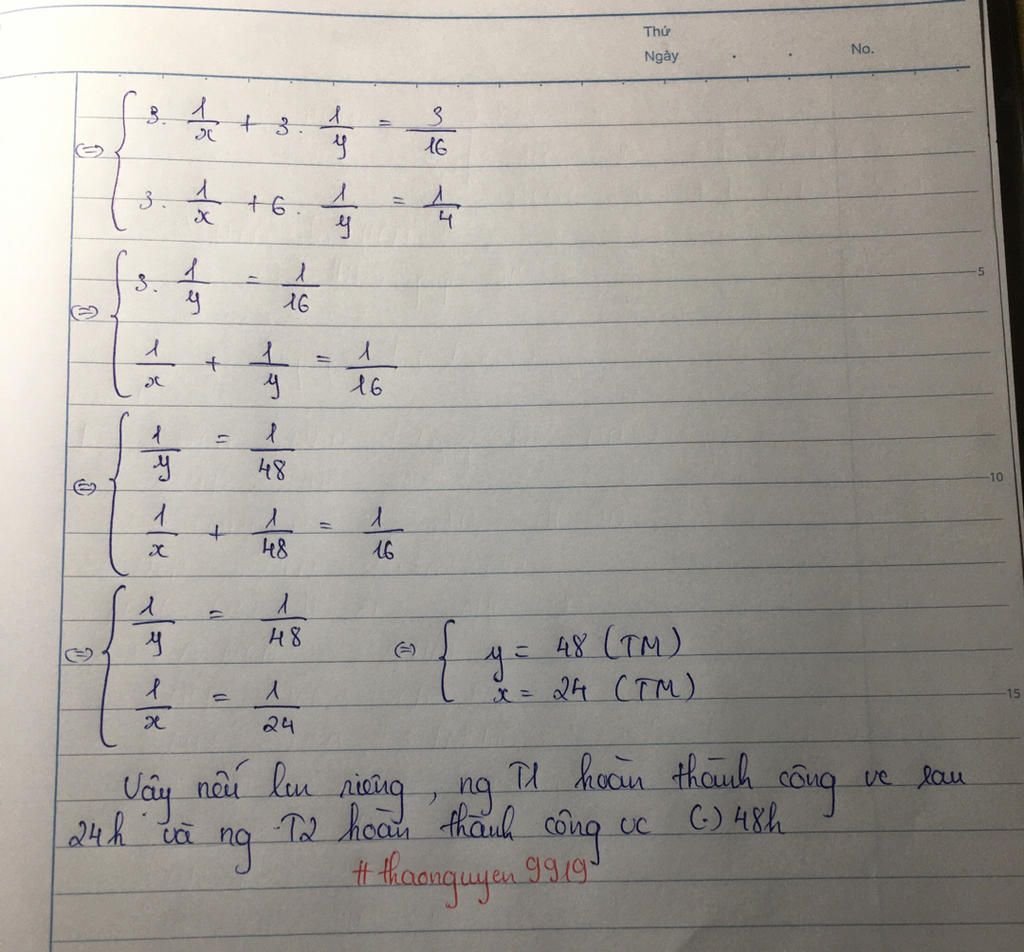 Thứ
Ngày . . No.
⇔ { 3. 1/x + 3. 1/y = 3/16
3. 1/x + 6. 1/y = 1/4
⇔ { 3. 1/y = 1/16
5
1/x + 1/y = 1/16
⇔ { 1/y = 1/48
10
1/x + 1/48 = 1/16
⇔ { 1/y = 1/48 ⇔ { y = 48 (TM)
1/x = 1/24 x = 24 (TM)
15
Vậy nếu làm riêng, ng T1 hoàn thành công vc sau
24h và ng T2 hoàn thành công vc (.) 48h
#thaonguyen9919